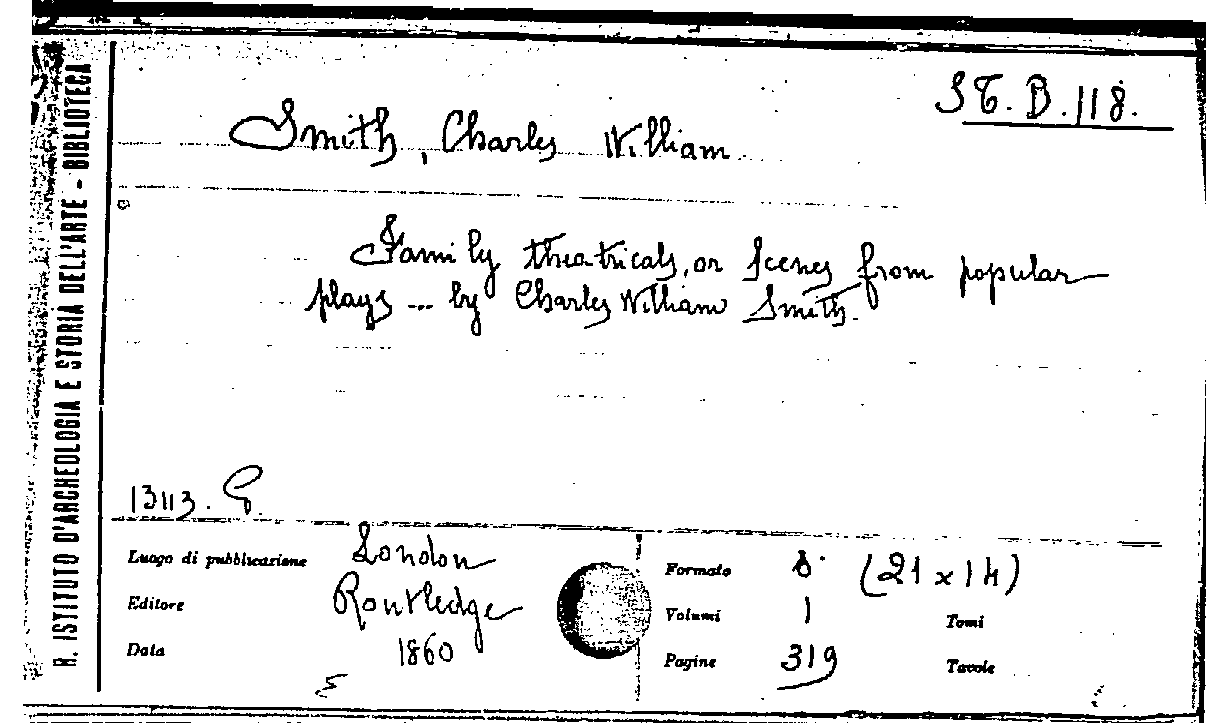 R. ISTITUTO D'ARCHEOLOGIA E STORIA DELL'ARTE - BIBLIOTECA
ST. B. 118.
Smith, Charles William
Family theatricals, or scenes from popular
plays ... by Charles William Smith.
13113. G.
Luogo di pubblicazione London
Editore Routledge
Data 1860
Formato 8° (21 x 14)
Volumi 1 Tomi
Pagine 319 Tavole